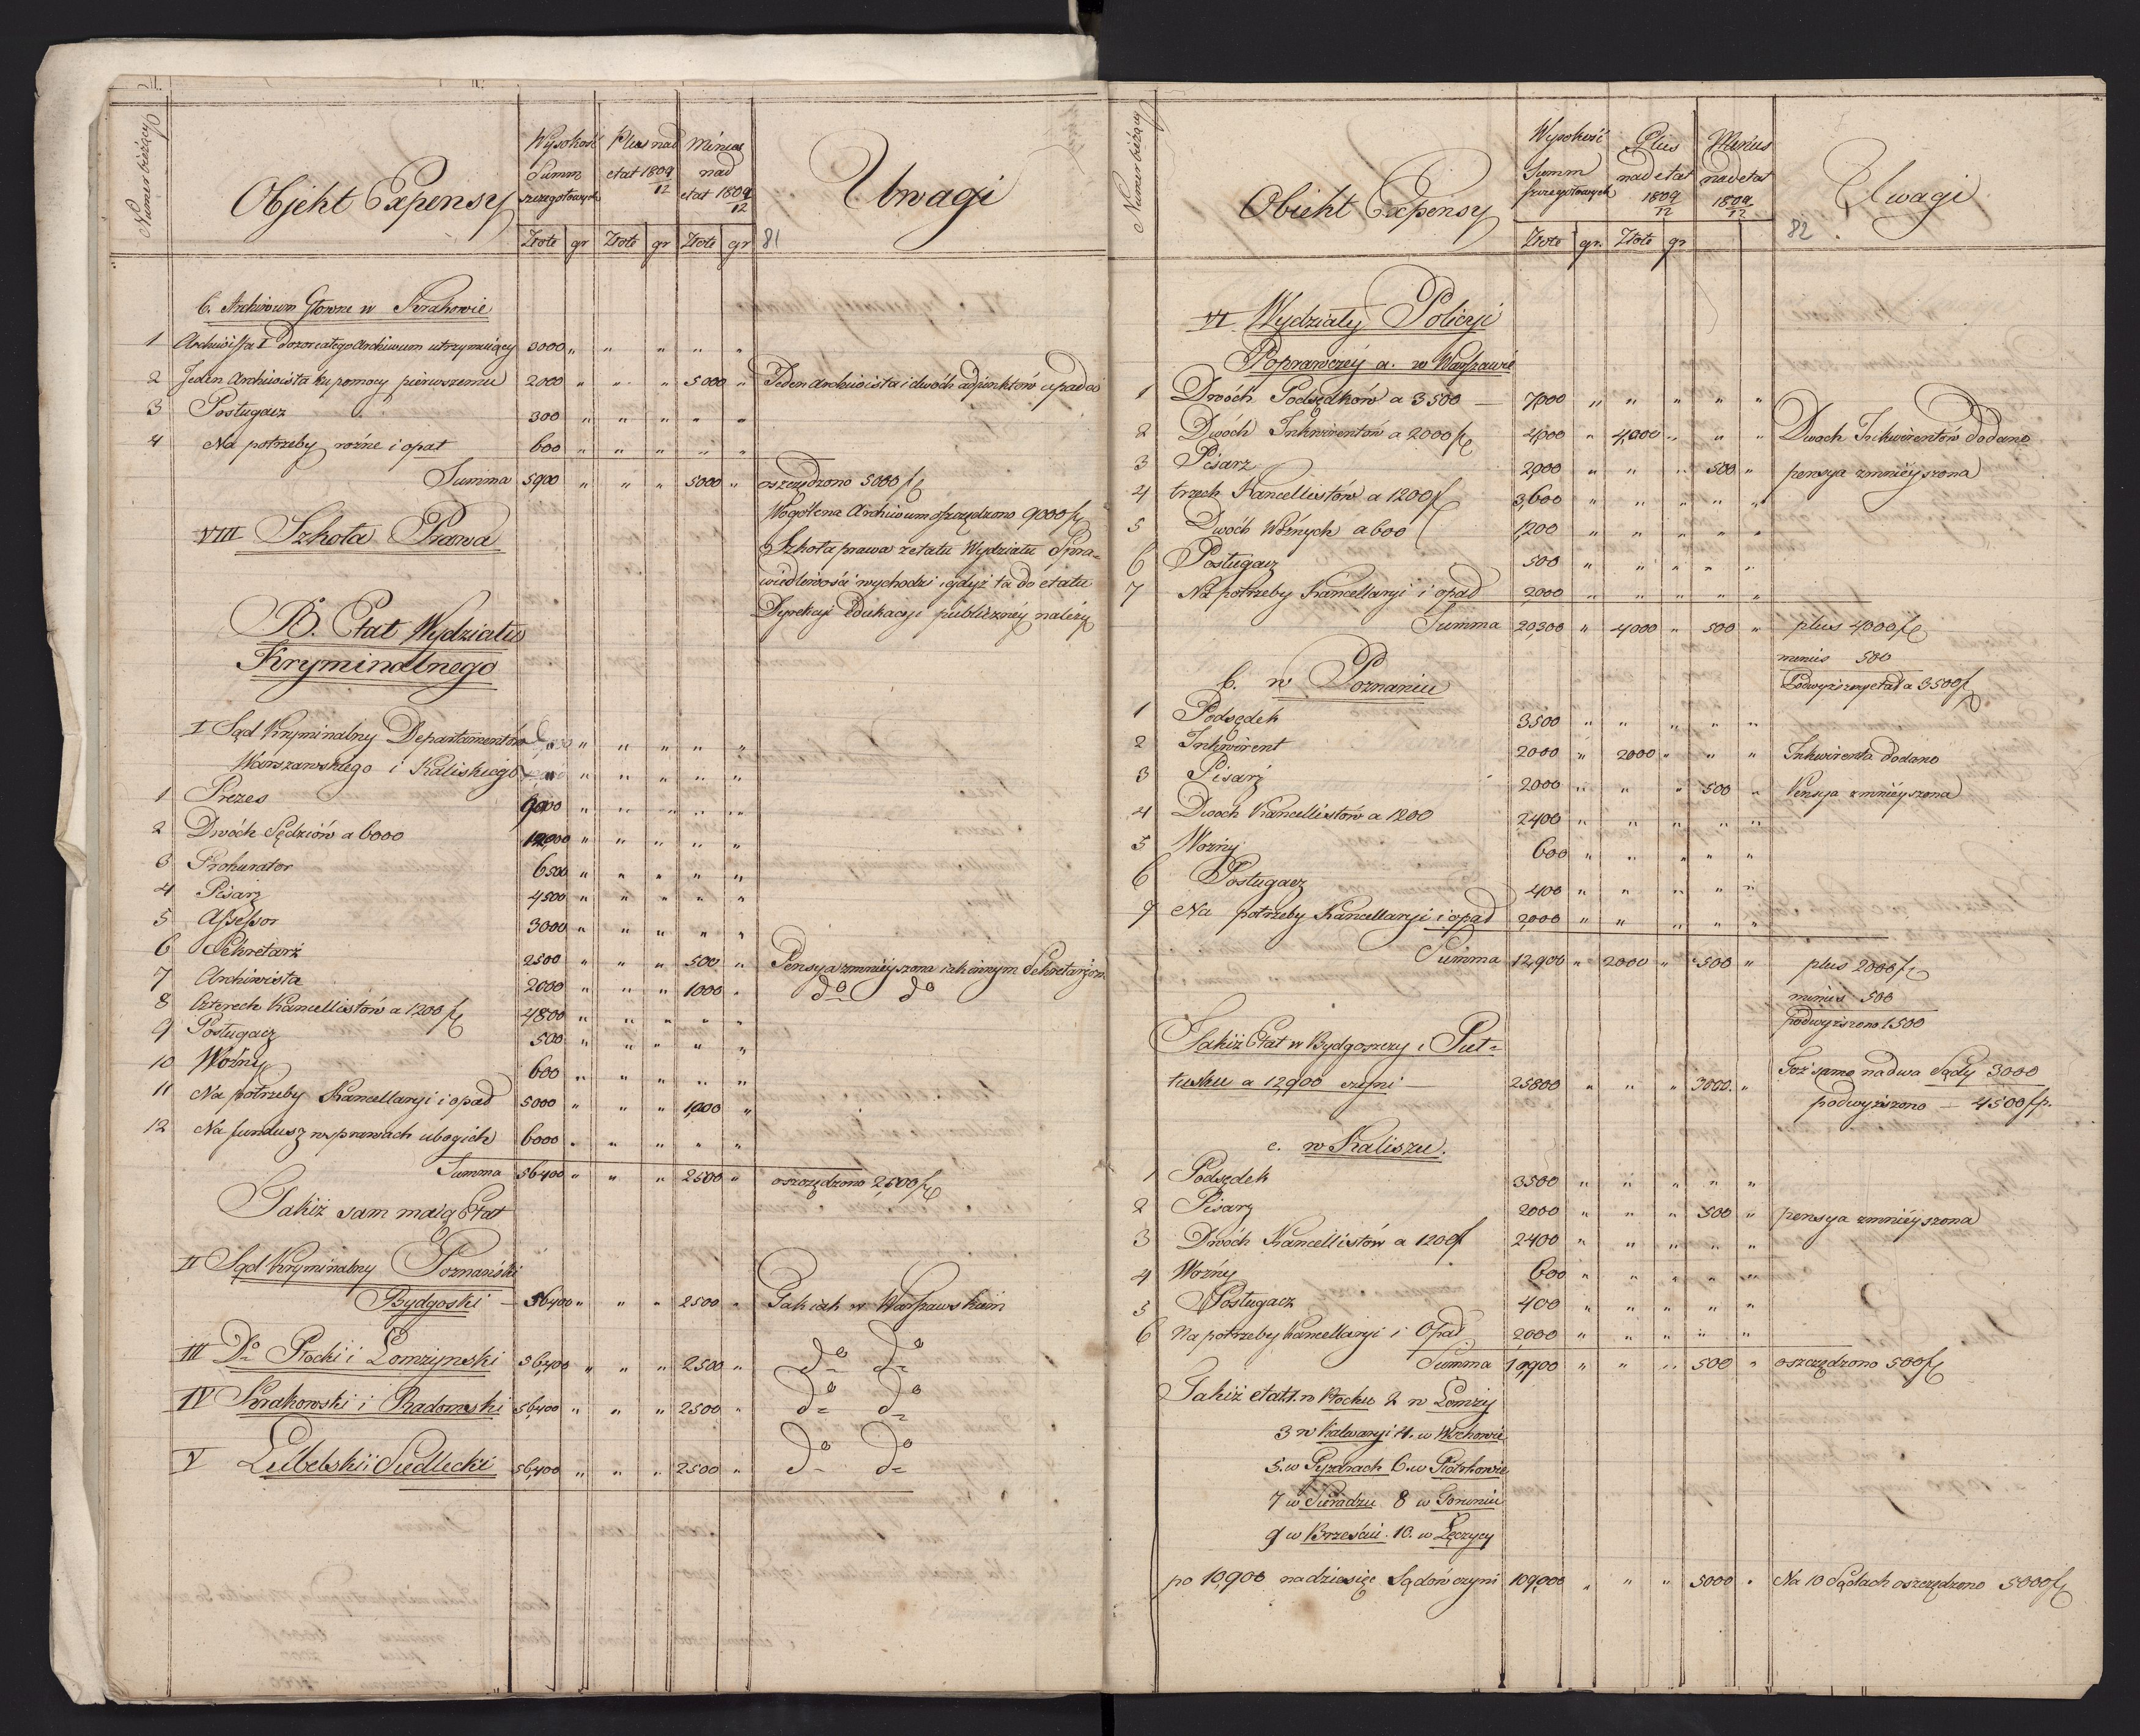 Numer bieżący
Objekt Expensy
Wysokość Summ szczegołowych
Plus nad etat 1809/12
Minus nad etat 1809/12
Uwagi
Złote gr Złote gr Złote gr 81
b. Archiwum Głowne w Krakowie
1 Archiwista I dozor całego Archiwum utrzymuiący 3000 " " " " "
2 Jeden Archiwista ku pomocy pierwszemu 2000 " " " 5000 " Jeden Archiwista i dwóch adjunktów upada
3 Posługacz 300 " " " " "
4 Na potrzeby rożne i opał 600 " " " " "
Summa 5900 " " " 5000 " oszczędzono 5000 f
Wogóle na Archiwum oszczędzono 9000 f
VIII Szkoła Prawa
Szkoła prawa z etatu Wydziału Spra-
wiedliwości wychodzi, gdyż ta do etatu
Dyrekcyi Edukacyi publiczney należy
B. Etat Wydziału
Kryminalnego
I Sąd Kryminalny Departamentów " " " " "
Warszawskiego i Kaliskiego " " " " "
1 Prezes 9000 " " " " "
2 Dwóch Sędziów a 6000 12000 " " " " "
3 Prokurator 6500 " " " " "
4 Pisarz 4500 " " " " "
5 Assessor 3000 " " " " "
6 Sekretarz 2500 " " " 500 " Pensya zmnieyszona iak innym Sekretarzom
7 Archiwista 2000 " " " 1000 " do do
8 Czterech Kancellistów a 1200 f 4800 " " " " "
9 Posługacz 500 " " " " "
10 Woźny 600 " " " " "
11 Na potrzeby Kancellaryi i opad 5000 " " " 1,000 "
12 Na fundusz w sprawach ubogich 6000 " " " " "
Summa 56400 " " " 2500 " oszczędzono 2,500 f
Takiż sam maią Etat
II Sąd Kryminalny Poznański
Bydgoski — 56400 " " " 2500 " Tak iak w Warszawskim
III Do Płocki i Łomżyński 56,400 " " " 2500 " do do
IV Krakowski i Radomski 56,400 " " " 2500 " do do
V Lubelski i Siedlecki 56,400 " " " 2500 " do do
Numer bieżący
Obiekt Expensy
Wysokość Summ szczegołowych
Plus nad etat 1809/12
Minus nad etat 1809/12
Uwagi
Złote gr. Złote gr 82
VI Wydziały Policyi
Poprawczey a. w Warszawie
1 Dwóch Podsędków a 3500 — 7,000 " " " " "
2 Dwóch Inkwirentów a 2000 f 4,000 " 4,000 " " " Dwoch Inkwirentów dodano
3 Pisarz 2,000 " " " 500 " pensya zmnieyszona
4 trzech Kancellistów a 1200 f 3,600 " " " " "
5 Dwóch Woźnych a 600 f 1,200 " " " " "
6 Posługacz 500 " " " " "
7 Na potrzeby Kancellaryi i opad 2,000 " " " " "
Summa 20,300 " 4000 " 500 " plus 4000 f
minus 500
Podwyższony etat a 3500 f
b. w Poznaniu
1 Podsędek 3500 " " " " "
2 Inkwirent 2000 " 2000 " " " Inkwirenta dodano
3 Pisarz 2000 " " " 500 " Pensya zmnieyszona
4 Dwoch Kancellistów a 1200 2400 " " " " "
5 Woźny 600 " " " " "
6 Posługacz 400 " " " " "
7 Na potrzeby Kancellaryi i opad 2,000 " " " " "
Summa 12,900 " 2000 " 500 " plus 2000 f
minus 500
podwyższono 1500
Takiż Etat w Bydgoszczy i Puł-
tusku a 12,900 czyni — 25800 " " " 3000 " Toż samo na dwa Sądy 3000
podwyższono — 4500 fp.
c. w Kaliszu.
1 Podsędek 3500 " " " " "
2 Pisarz 2000 " " " 500 " pensya zmnieyszona
3 Dwóch Kancellistów a 1200 f 2400 " " " " "
4 Woźny 600 " " " " "
5 Posługacz 400 " " " " "
6 Na potrzeby Kancellaryi i Opad 2000 " " " " "
Summa 10,900 " " " 500 " oszczędzono 500 f
Takiż etat 1. w Płocku 2 w Łomży
3 w Kalwaryi 4. w Wschowie
5. w Pyzdrach 6. w Piotrkowie
7 w Sieradzu 8 w Toruniu
9 w Brześciu. 10. w Łęczycy
po 10,900 na dziesięć Sądów czyni 109,000 " " " 5000 " Na 10 Sądach oszczędzono 5000 f